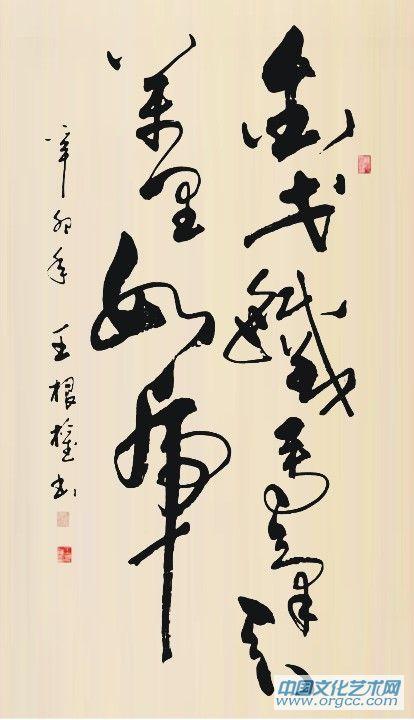 金戈鐵馬氣吞
萬里如虎
辛卯年 王根權书
中国文化艺术网
www.orgcc.com